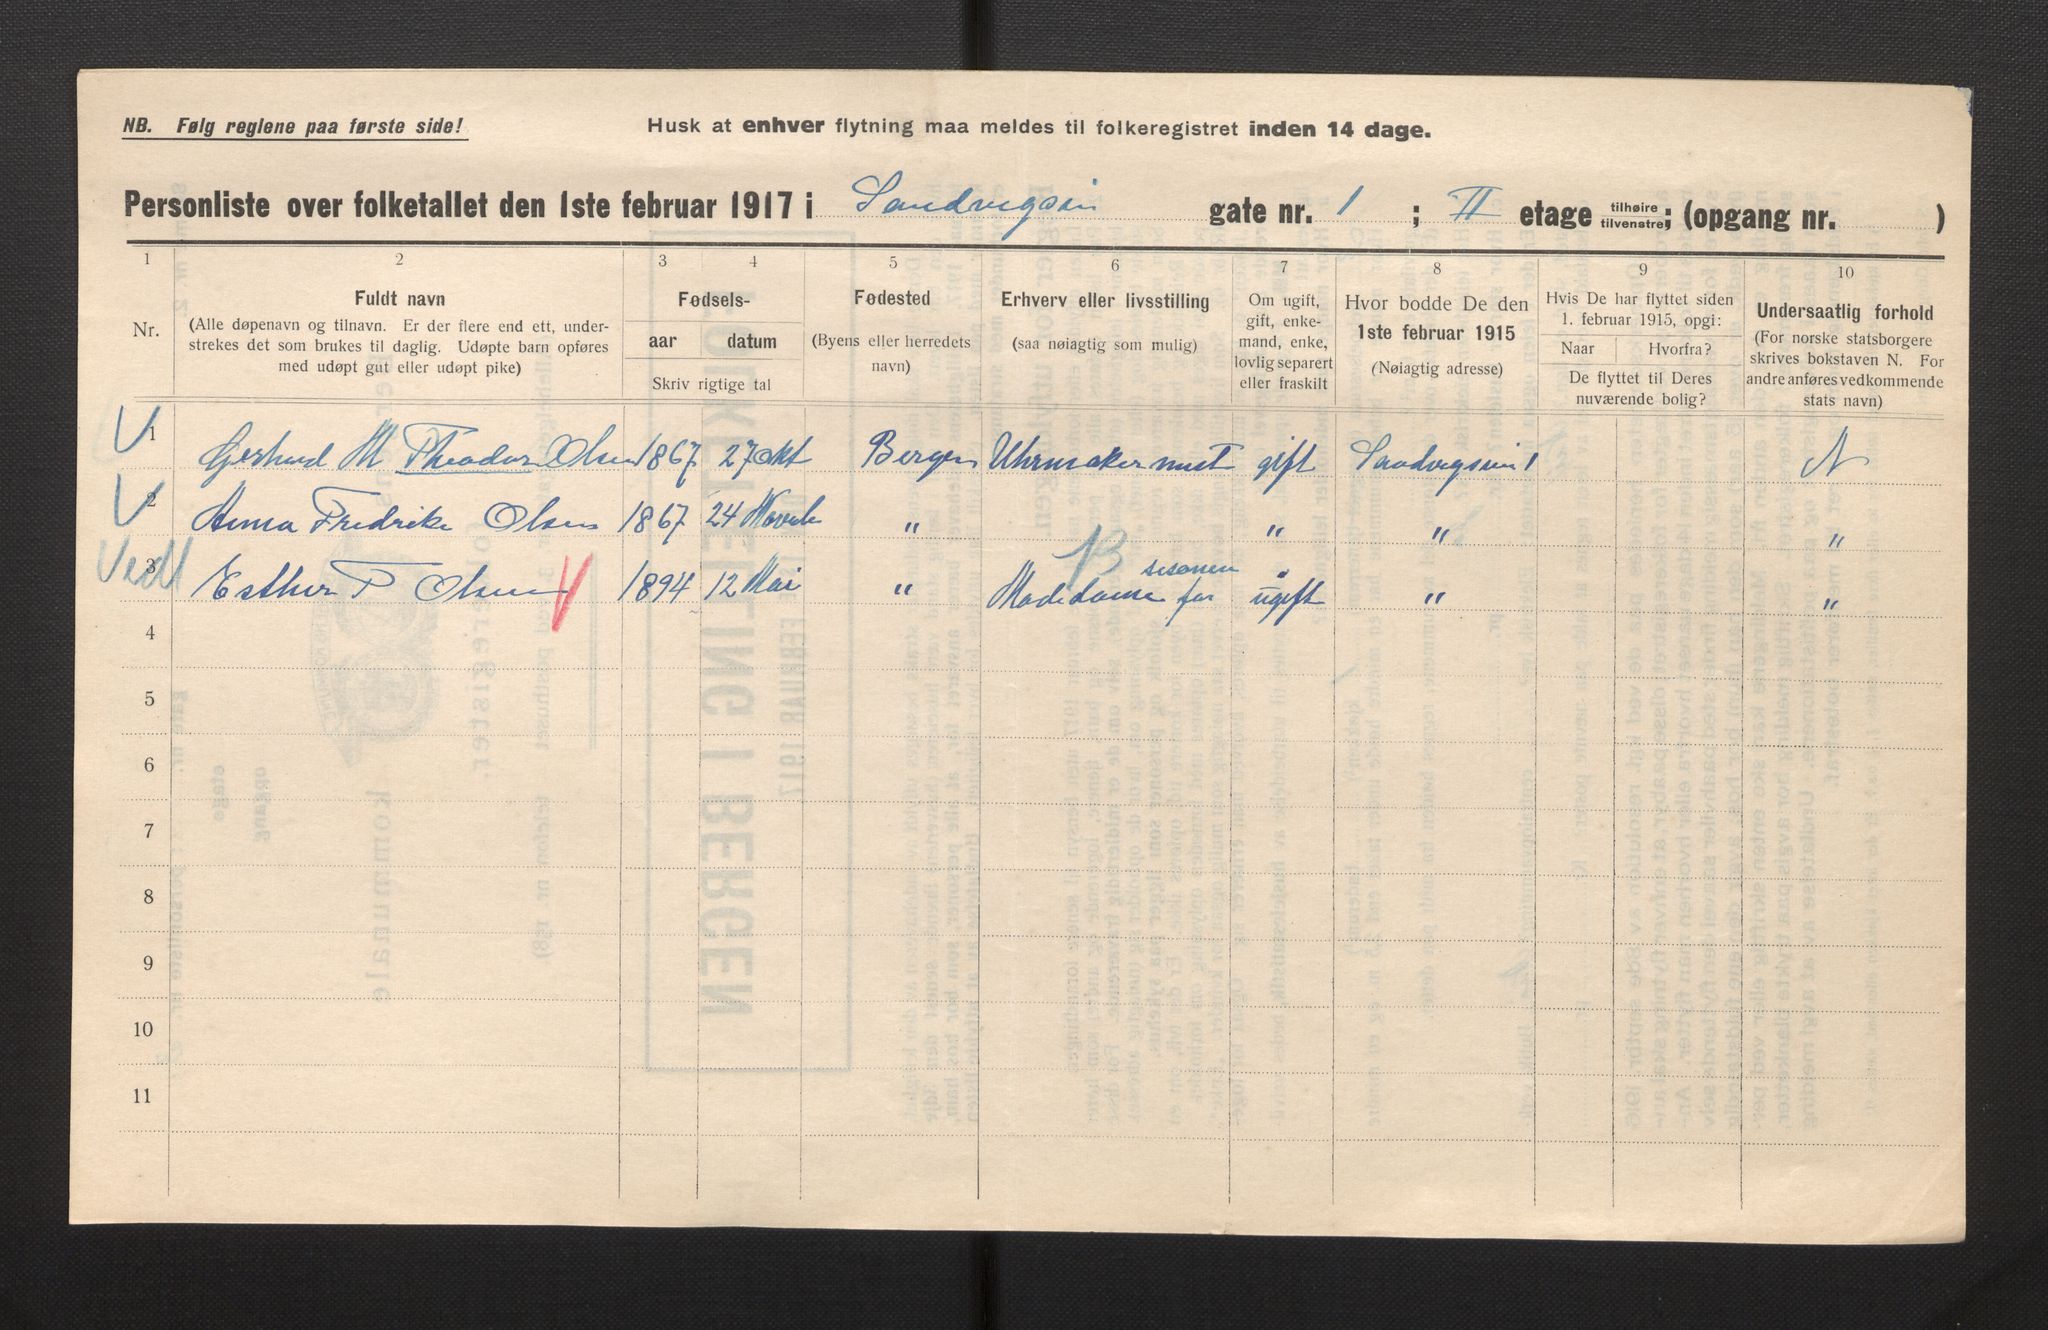 NB. Følg reglene paa første side!
Husk at enhver flytning maa meldes til folkeregistret inden 14 dage.
Personliste over folketallet den 1ste februar 1917 i Sandvigsvei gate nr. 1 ; II etage tilhøire tilvenstre; (opgang nr. )
1 2 3 4 5 6 7 8 9 10
Nr.
Fuldt navn
(Alle døpenavn og tilnavn. Er der flere end ett, under-
strekes det som brukes til daglig. Udøpte barn opføres
med udøpt gut eller udøpt pike)
Fødsels-
aar datum
Skriv rigtige tal
Fødested
(Byens eller herredets
navn)
Erhverv eller livsstilling
(saa nøiagtig som mulig)
Om ugift,
gift, enke-
mand, enke,
lovlig separert
eller fraskilt
Hvor bodde De den
1ste februar 1915
(Nøiagtig adresse)
Hvis De har flyttet siden
1. februar 1915, opgi:
Naar Hvorfra?
De flyttet til Deres
nuværende bolig?
Undersaatlig forhold
(For norske statsborgere
skrives bokstaven N. For
andre anføres vedkommende
stats navn)
V 1 Gerhard M Theodor Olsen 1867 27 Okt Bergen Uhrmaker mest gift Sandvigsvei 1 N
V 2 Anna Fredrike Olsen 1867 24 Novbr " " " "
Vedl 3 Esther F Olsen V 1894 12 Mai " Modedame for sesonen ugift " "
4
5
6
7
8
9
10
11